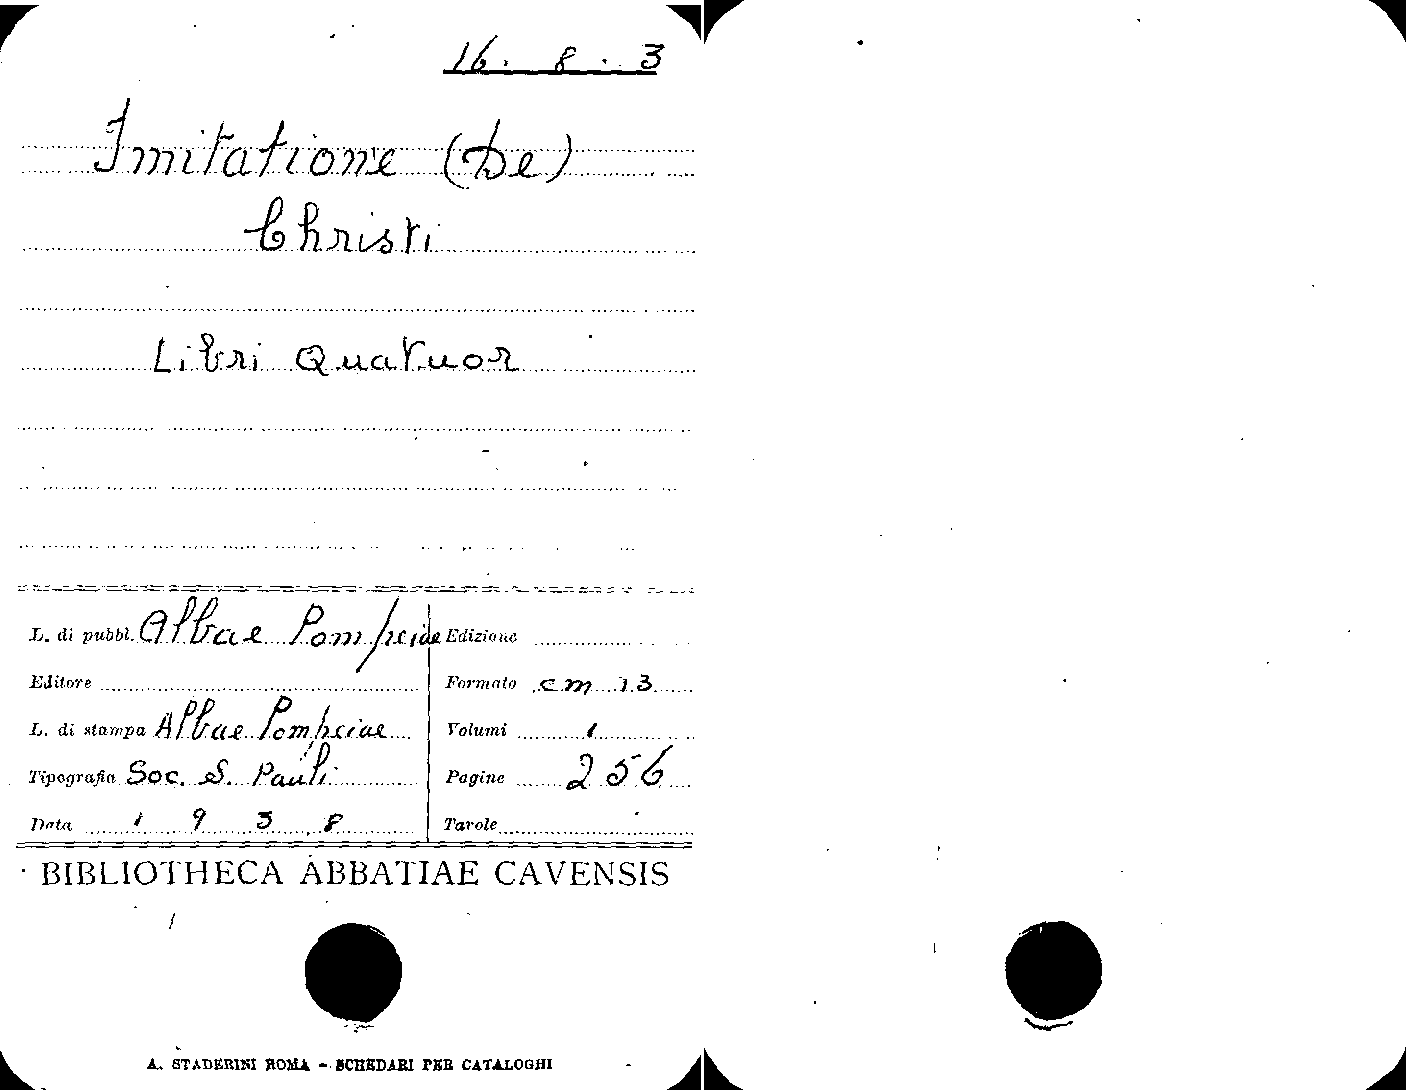 16. 8. 3
Imitatione (De)
Christi
Libri Quatuor
L. di pubbl. Albae Pompeiae Edizione
Editore Formato cm 13
L. di stampa Albae Pompeiae Volumi 1
Tipografia Soc. S. Pauli Pagine 256
Data 1938 Tavole
BIBLIOTHECA ABBATIAE CAVENSIS
A. STADERINI ROMA - SCHEDARI PER CATALOGHI